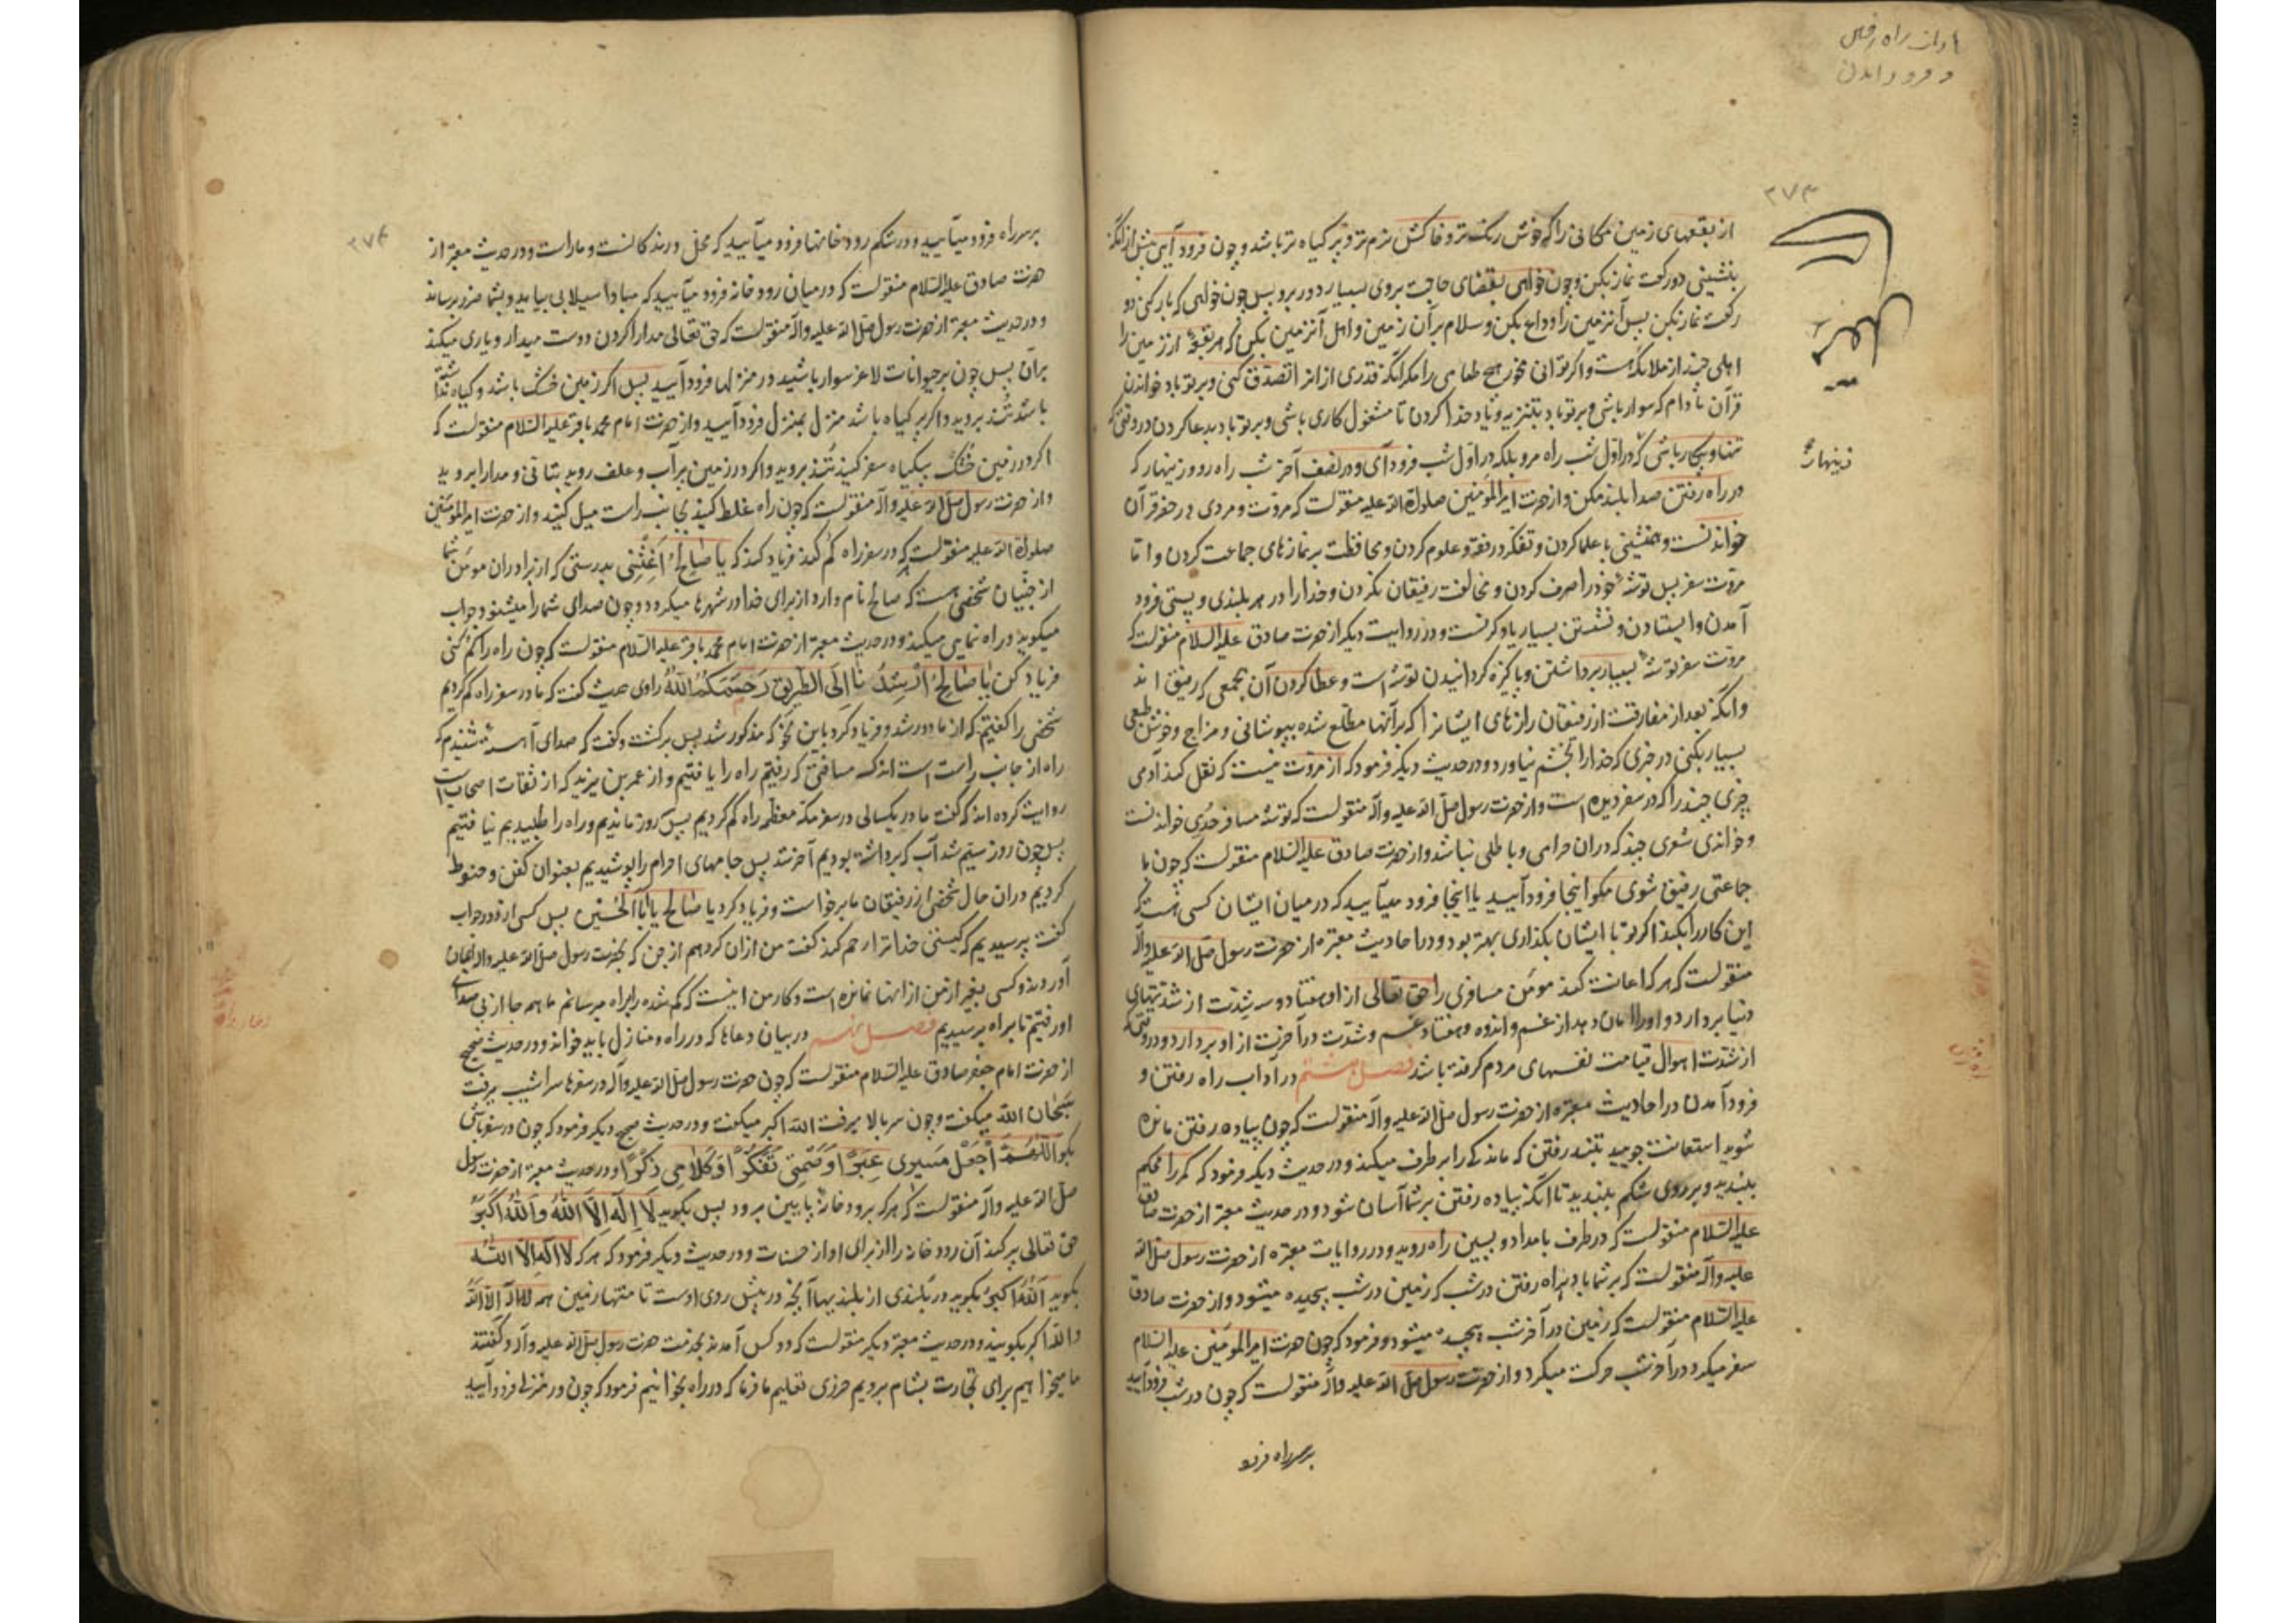 اداب راه رفتن
و فرود امدن
۲۷۳
از بقعهای زمین مکانی را که خوش رنگ تر و خاکش نرم تر و پر گیاه تر باشد و چون فرود آیی پیش از آنکه
بنشینی دو رکعت نماز بکن و چون خواهی بقضای حاجت بروی بسیار دور برو پس چون خواهی که بار کنی دو
رکعت نماز بکن پس آن زمین را وداع بکن و سلام بر آن زمین و اهل آن زمین بکن که هر بقعه از زمین را
اهلی چند از ملائکه هست و اگر توانی مخور هیچ طعامی را مگر آنکه قدری از انرا تصدق کنی و بر تو باد خواندن
قرآن مادام که سوار باشی و بر تو باد بتنزیه و یاد خدا کردن تا مشغول کاری باشی و بر تو باد بدعا کردن در وقتی که
تنها و بیکار باشی که در اول شب راه مرو بلکه در اول شب فرود آی و در نصف آخر شب راه رو و زینهار که
زینهار
در راه رفتن صدا بلند مکن و از حضرت امیرالمؤمنین صلوة الله علیه منقولست که مروت و مردی در حضر قرآن
خواندنست و همنشینی با علما کردن و تفکر در فقه و علوم کردن و محافظت بر نمازهای جماعت کردن و اما
مروت سفر بس توشه خود را صرف کردن و مخالفت رفیقان نکردن و خدا را در هر بلندی و پستی و فرود
آمدن و ایستادن و نشستن بسیار یاد کرنست و در روایت دیگر از حضرت صادق علیه السلام منقولست که
مروت سفر توشه بسیار برداشتن و پاکیزه گردانیدن توشه است و عطا کردن آن بجمعی که رفیق اند
و آنکه بعد از مفارقت از رفیقان رازهای ایشانرا که بر آنها مطلع شده بپوشانی و مزاح و خوش طبعی
بسیار بکنی در چیزی که خدا را بخشم نیاورد و در حدیث دیگر فرمود که از مروت نیست که نقل کند آدمی
چیزی چند را که در سفر دیده است و از حضرت رسول صلی الله علیه و آله منقولست که توشه مسافر حُدِی خواندنست
و خواندی شعری چند که در ان حرامی و باطلی نباشد و از حضرت صادق علیه السلام منقولست که چون با
جماعتی رفیق شوی مگو اینجا فرود آیید یا اینجا فرود میآیید که در میان ایشان کسی هست که
این کار را بکند اگر تو با ایشان بگذاری بهتر بود و در احادیث معتبره از حضرت رسول صلی الله علیه و آله
منقولست که هر که اعانت کند مومن مسافری را حق تعالی از او هفتاد و سه شدت از شدتهای
دنیا بردارد و او را امان دهد از غم و اندوه و هفتاد غم و شدت در آخرت از او بردارد در وقتی که
از شدت اهوال قیامت نفسهای مردم گرفته باشد فصل هشتم در آداب راه رفتن و
فرود آمدن در احادیث معتبره از حضرت رسول صلی الله علیه و آله منقولست که چون پیاده رفتن مانده
شوید استعانت جویید بتند رفتن که ماندگی را بر طرف میکند و در حدیث دیگر فرمود که کمر را محکم
ببندید و بر روی شکم ببندید تا آنکه پیاده رفتن بر شما آسان شود و در حدیث معتبر از حضرت صادق
علیه السلام منقولست که در طرف بامداد و پسین راه روید و در روایات معتبره از حضرت رسول صلی الله
علیه و آله منقولست که بر شما باد براه رفتن در شب که زمین در شب پیچیده میشود و از حضرت صادق
علیه السلام منقولست که زمین در آخر شب پیچیده میشود و فرمود که چون حضرت امیرالمؤمنین علیه السلام
سفر میکرد در آخر شب حرکت میکرد و از حضرت رسول صلی الله علیه و آله منقولست که چون در شب فرود آیید
بر سر راه فرو
۲۷۴
بر سر راه فرود میآیید و در شکم رودخانها فرود میآیید که محل درندگانست و مارا‌ست و در حدیث معتبر از
حضرت صادق علیه السلام منقولست که در میان رودخانه فرود میآیید که مبادا سیلابی بیاید و بشما ضرر برساند
و در حدیث معتبر از حضرت رسول صلی الله علیه و آله منقولست که حق تعالی مدارا کردن دوست میدارد و یاری میکند
بر آن پس چون بر حیوانات لاغر سوار باشید در منزلها فرود آیید پس اگر زمین خشک باشد و گیاه نداشته
باشد تُند بروید و اگر پر گیاه باشد منزل بمنزل فرود آیید و از حضرت امام محمد باقر علیه السلام منقولست که
اگر در زمین خشک بیگیاه سفر کنید تُند بروید و اگر در زمین پر آب و علف روید بتانی و مدارا بروید
و از حضرت رسول صلی الله علیه و آله منقولست که چون راه غلط کنید بجانب راست میل کنید و از حضرت امیرالمؤمنین
صلوة الله علیه منقولست که در سفر راه گم کند فریاد کند که یا صٰالِحُ اَغِثْنِی بدرستی که از برادران مومن شما
از جنیان شخصی هست که صالح نام دارد از برای خدا در شهرها میگردد و چون صدای شما را میشنود جواب
میگوید و راه نمایی میکند و در حدیث معتبر از حضرت امام محمد باقر علیه السلام منقولست که چون راه را گم کنی
فریاد کن یٰا صٰالِحُ اَرْشِدْ نٰا اِلَی الطَّریقِ رَحِمَکُمُ اللّٰهُ راوی حدیث گفت که ما در سفر راه گم کردیم
شخصی را گفتیم که از ما دور شد و فریاد کرد باین نحو که مذکور شد پس برگشت و گفت که صدای آهسته شنیدم که
راه از جانب راست است اندک مسافتی که رفتیم راه را یافتیم و از عمر بن یزید که از ثقات اصحابست
روایت کرده اند که گفت ما در یکسالی در سفر مکه معظمه راه گم کردیم پس سه روز ماندیم و راه را طلبیدیم نیافتیم
پس چون روز سیّم شد آب که برداشته بودیم آخر شد پس جامهای احرام را پوشیدیم بعنوان کفن و حنوط
کردیم در ان حال شخصی از رفیقان ما برخواست و فریاد کرد یا صٰالح یٰا اَبَا الْحُسَیْن پس کسی از دور جواب
گفت پرسیدیم که کیستی خدا ترا رحم کند گفت من از ان گروهم از جن که بحضرت رسول صلی الله علیه و اله ایمان
آوردند و کسی بغیر از من از انها نمانده است و کار من اینست که گم شده را براه میرسانم ما هم جا از پی صدای
او رفتیم تا براه رسیدیم فصل نهم در بیان دعاها که در راه و منازل باید خواند و در حدیث صحیح
از حضرت امام جعفر صادق علیه السلام منقولست که چون حضرت رسول صلی الله علیه و آله در سفرها سراشیب میرفت
سُبحٰان اللّٰه میگفت و چون سر بالا میرفت اللّٰه اکبر میگفت و در حدیث صحیح دیگر فرمود که چون در سفر باشی
بگو اَللّٰهُمَّ اجْعَلْ مَسیری عِبَرًا وَصَمْتی تَفَکُّرًا وَکَلامی ذِکْرًا و در حدیث معتبر از حضرت رسول
صلی الله علیه و آله منقولست که هر که برود خانه پایین برود پس بگوید لا اِلٰهَ اِلاَّ اللّٰهُ وَاللّٰهُ اَکْبَرُ
حق تعالی پر کند آن رودخانه را از برای او از حسنات و در حدیث دیگر فرمود که هر که لا اله الا اللّٰه
بگوید اَللّٰهُ اَکْبَرُ بگوید در بلندی از بلندیها آنچه در پیش روی اوست تا منتهای زمین همه لا اله الا اللّٰه
و اللّٰه اکبر بگویند و در حدیث معتبر دیگر منقولست که دو کس آمدند بخدمت حضرت رسول صلی الله علیه و آله و گفتند
ما میخواهیم برای تجارت بشام برویم حرزی تعلیم ما فرما که در راه بخوانیم فرمود که چون در منزلی فرود آیید